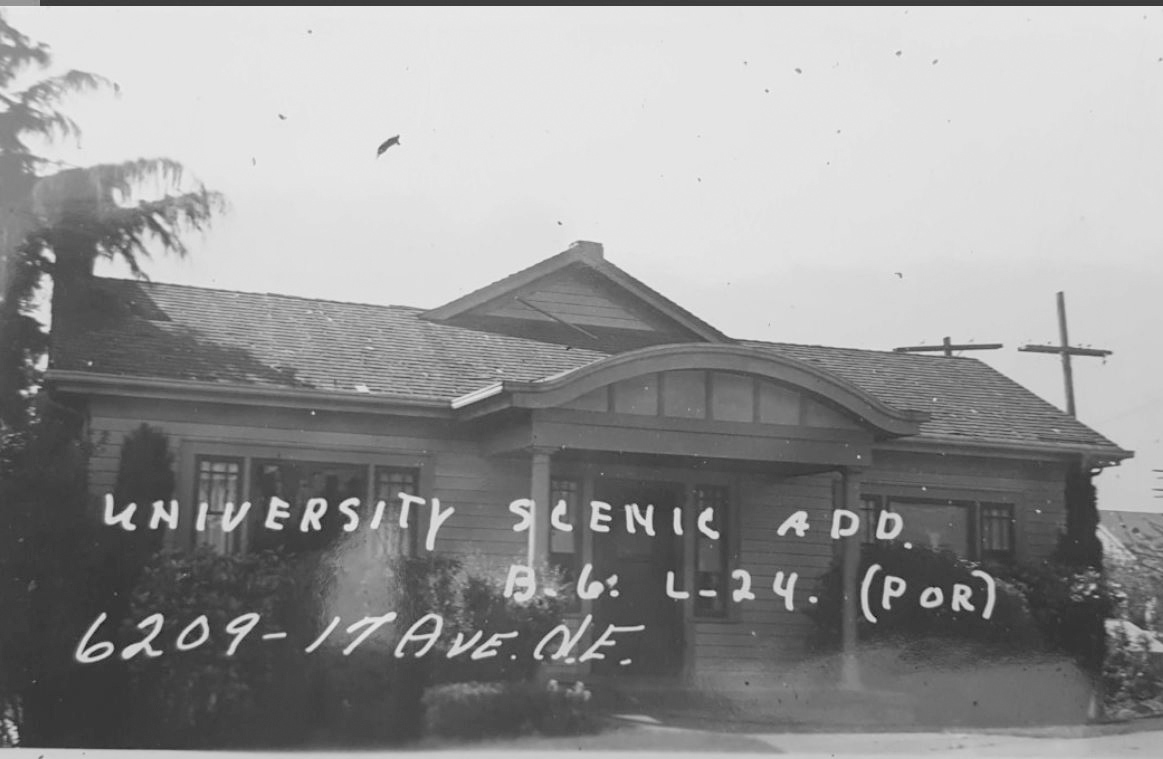 UNIVERSITY SCENIC ADD.
B-6: L-24. (POR)
6209-17 AVE. N.E.